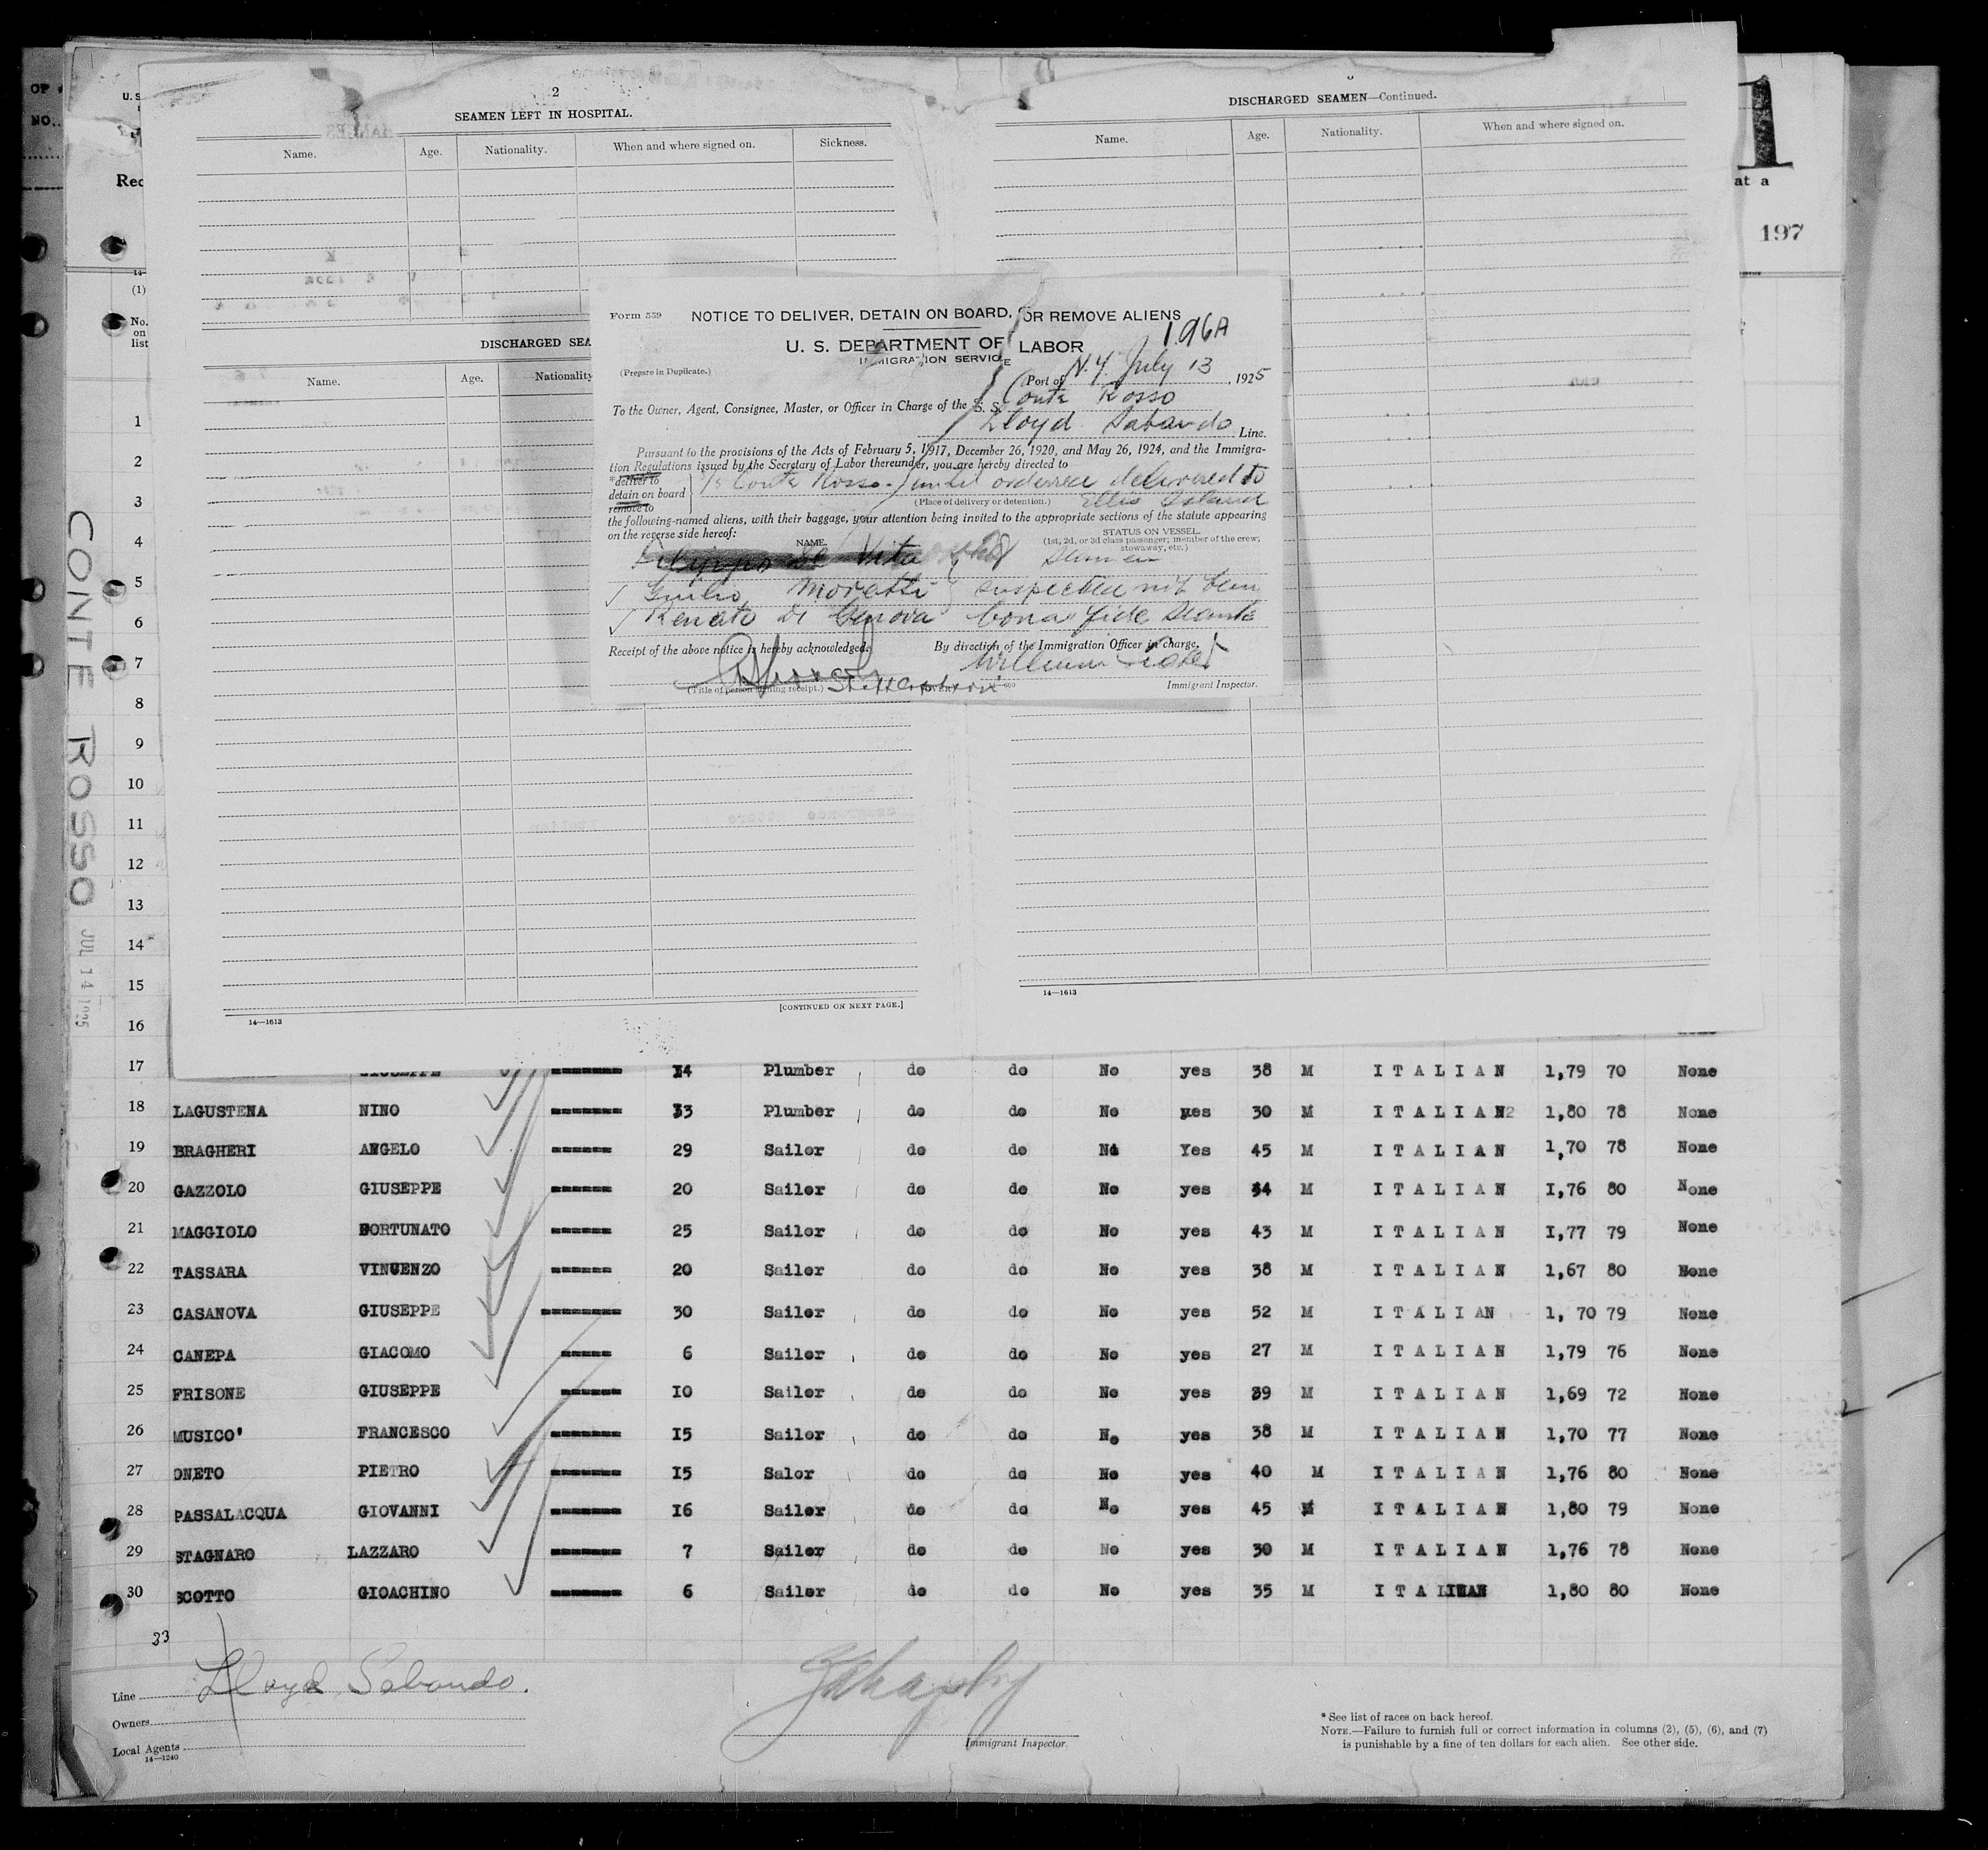 OF
NO.
U. S
Rec
(1)
No.
on
list
1
at a
197
2
SEAMEN LEFT IN HOSPITAL.
Name. Age. Nationality. When and where signed on. Sickness.
DISCHARGED SEA
Name. Age. Nationality
DISCHARGED SEAMEN—Continued.
Name. Age. Nationality. When and where signed on.
Form 559 NOTICE TO DELIVER, DETAIN ON BOARD, OR REMOVE ALIENS
196A
U. S. DEPARTMENT OF LABOR
IMMIGRATION SERVICE
(Prepare in Duplicate.)
Port of N.Y. July 13, 1925
To the Owner, Agent, Consignee, Master, or Officer in Charge of the S. S. Conte Rosso
Lloyd Sabaudo Line.
Pursuant to the provisions of the Acts of February 5, 1917, December 26, 1920, and May 26, 1924, and the Immigra-
tion Regulations issued by the Secretary of Labor thereunder, you are hereby directed to
*deliver to
detain on board
remove to
S Conte Rosso until ordered delivered to
(Place of delivery or detention.) Ellis Island
the following-named aliens, with their baggage, your attention being invited to the appropriate sections of the statute appearing
on the reverse side hereof:
NAME.
STATUS ON VESSEL.
(1st, 2d, or 3d class passenger; member of the crew;
stowaway, etc.)
Vita Seamen
Giulio Moretti suspected not
Renato Di Genova bona fide
Receipt of the above notice is hereby acknowledged. By direction of the Immigration Officer in charge.
William
(Title of person signing receipt.) Immigrant Inspector.
14—1613
[CONTINUED ON NEXT PAGE.]
14—1613
CONTE ROSSO
JUL 14 1925
1
2
3
4
5
6
7
8
9
10
11
12
13
14
15
16
17 GIUSEPPE 34 Plumber do do No yes 38 M ITALIAN 1,79 70 None
18 LAGUSTENA NINO 33 Plumber do do No yes 30 M ITALIAN 1,80 78 None
19 BRAGHERI ANGELO 29 Sailor do do No Yes 45 M ITALIAN 1,70 78 None
20 GAZZOLO GIUSEPPE 20 Sailor do do No yes 34 M ITALIAN I,76 80 None
21 MAGGIOLO FORTUNATO 25 Sailor do do No yes 43 M ITALIAN I,77 79 None
22 TASSARA VINCENZO 20 Sailor do do No yes 38 M ITALIAN 1,67 80 None
23 CASANOVA GIUSEPPE 30 Sailor do do No yes 52 M ITALIAN 1, 70 79 None
24 CANEPA GIACOMO 6 Sailor do do No yes 27 M ITALIAN 1,79 76 None
25 FRISONE GIUSEPPE I0 Sailor do do No yes 39 M ITALIAN 1,69 72 None
26 MUSICO' FRANCESCO I5 Sailor do do No yes 38 M ITALIAN 1,70 77 None
27 ONETO PIETRO I5 Salor do do No yes 40 M ITALIAN 1,76 80 None
28 PASSALACQUA GIOVANNI I6 Sailor do do No yes 45 M ITALIAN 1,80 79 None
29 STAGNARO LAZZARO 7 Sailor do do No yes 30 M ITALIAN 1,76 78 None
30 SCOTTO GIOACHINO 6 Sailor do do No yes 35 M ITALIAN 1,80 80 None
33
Line Lloyd Sabaudo.
Owners
Local Agents
14—1240
Immigrant Inspector.
* See list of races on back hereof.
NOTE.—Failure to furnish full or correct information in columns (2), (5), (6), and (7)
is punishable by a fine of ten dollars for each alien. See other side.